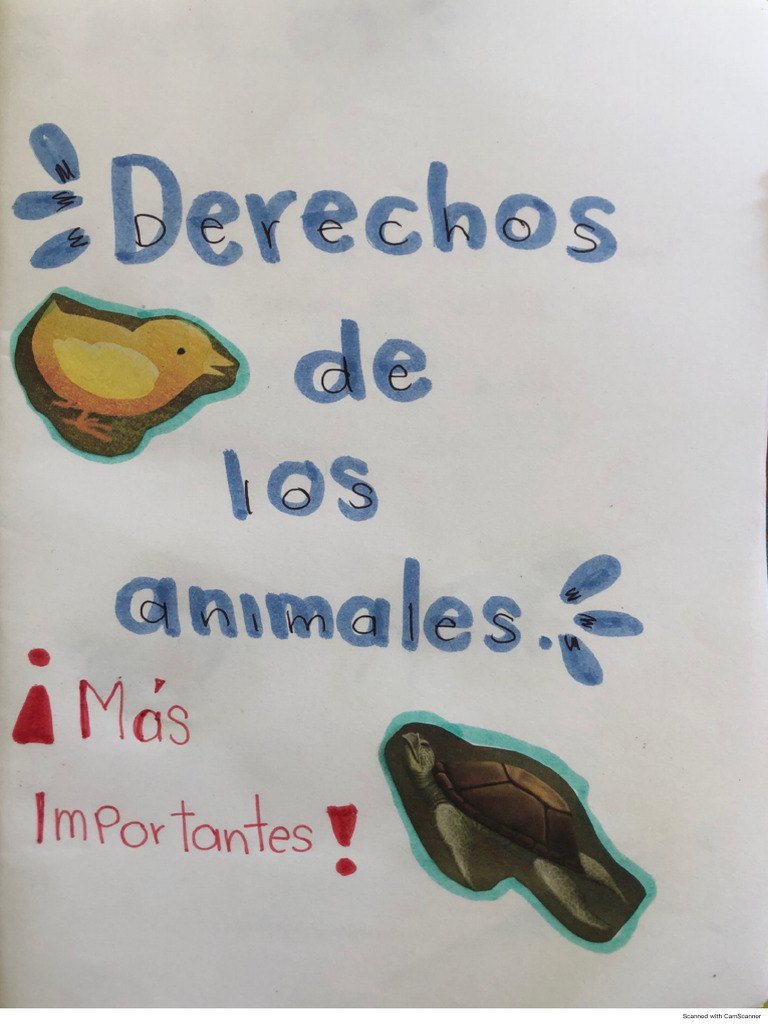 Derechos
de
los
animales.
¡Más
Importantes!
Scanned with CamScanner